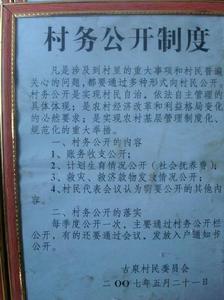 村务公开制度
凡是涉及到村里的重大事项和村民普遍
关心的问题,都要通过多种形式向村民公开。
村务公开是实现村民自治,依法自主管理的
具体体现;是农村经济改革和利益格局变化
的必然要求;是实现农村基层管理制度化、
规范化的重大举措。
一、村务公开的内容
1、账务收支公开;
2、计划生育情况公开(社会抚养费);
3、救灾、救济款物发放情况公开;
4、村民代表会议认为需要公开的其他内
容。
二、村务公开的落实
每季度公开一次,主要通过村务公开栏
公开,有的还要通过会议,发放入户通知书
公开。
古泉村民委员会
二00七年五月二十一日